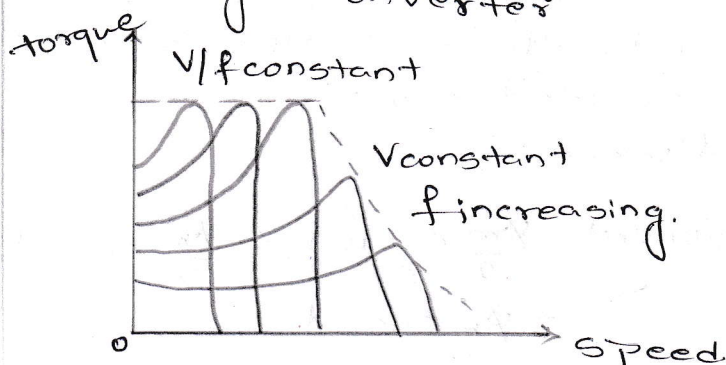 torque
V/f constant
V constant
f increasing.
0
Speed